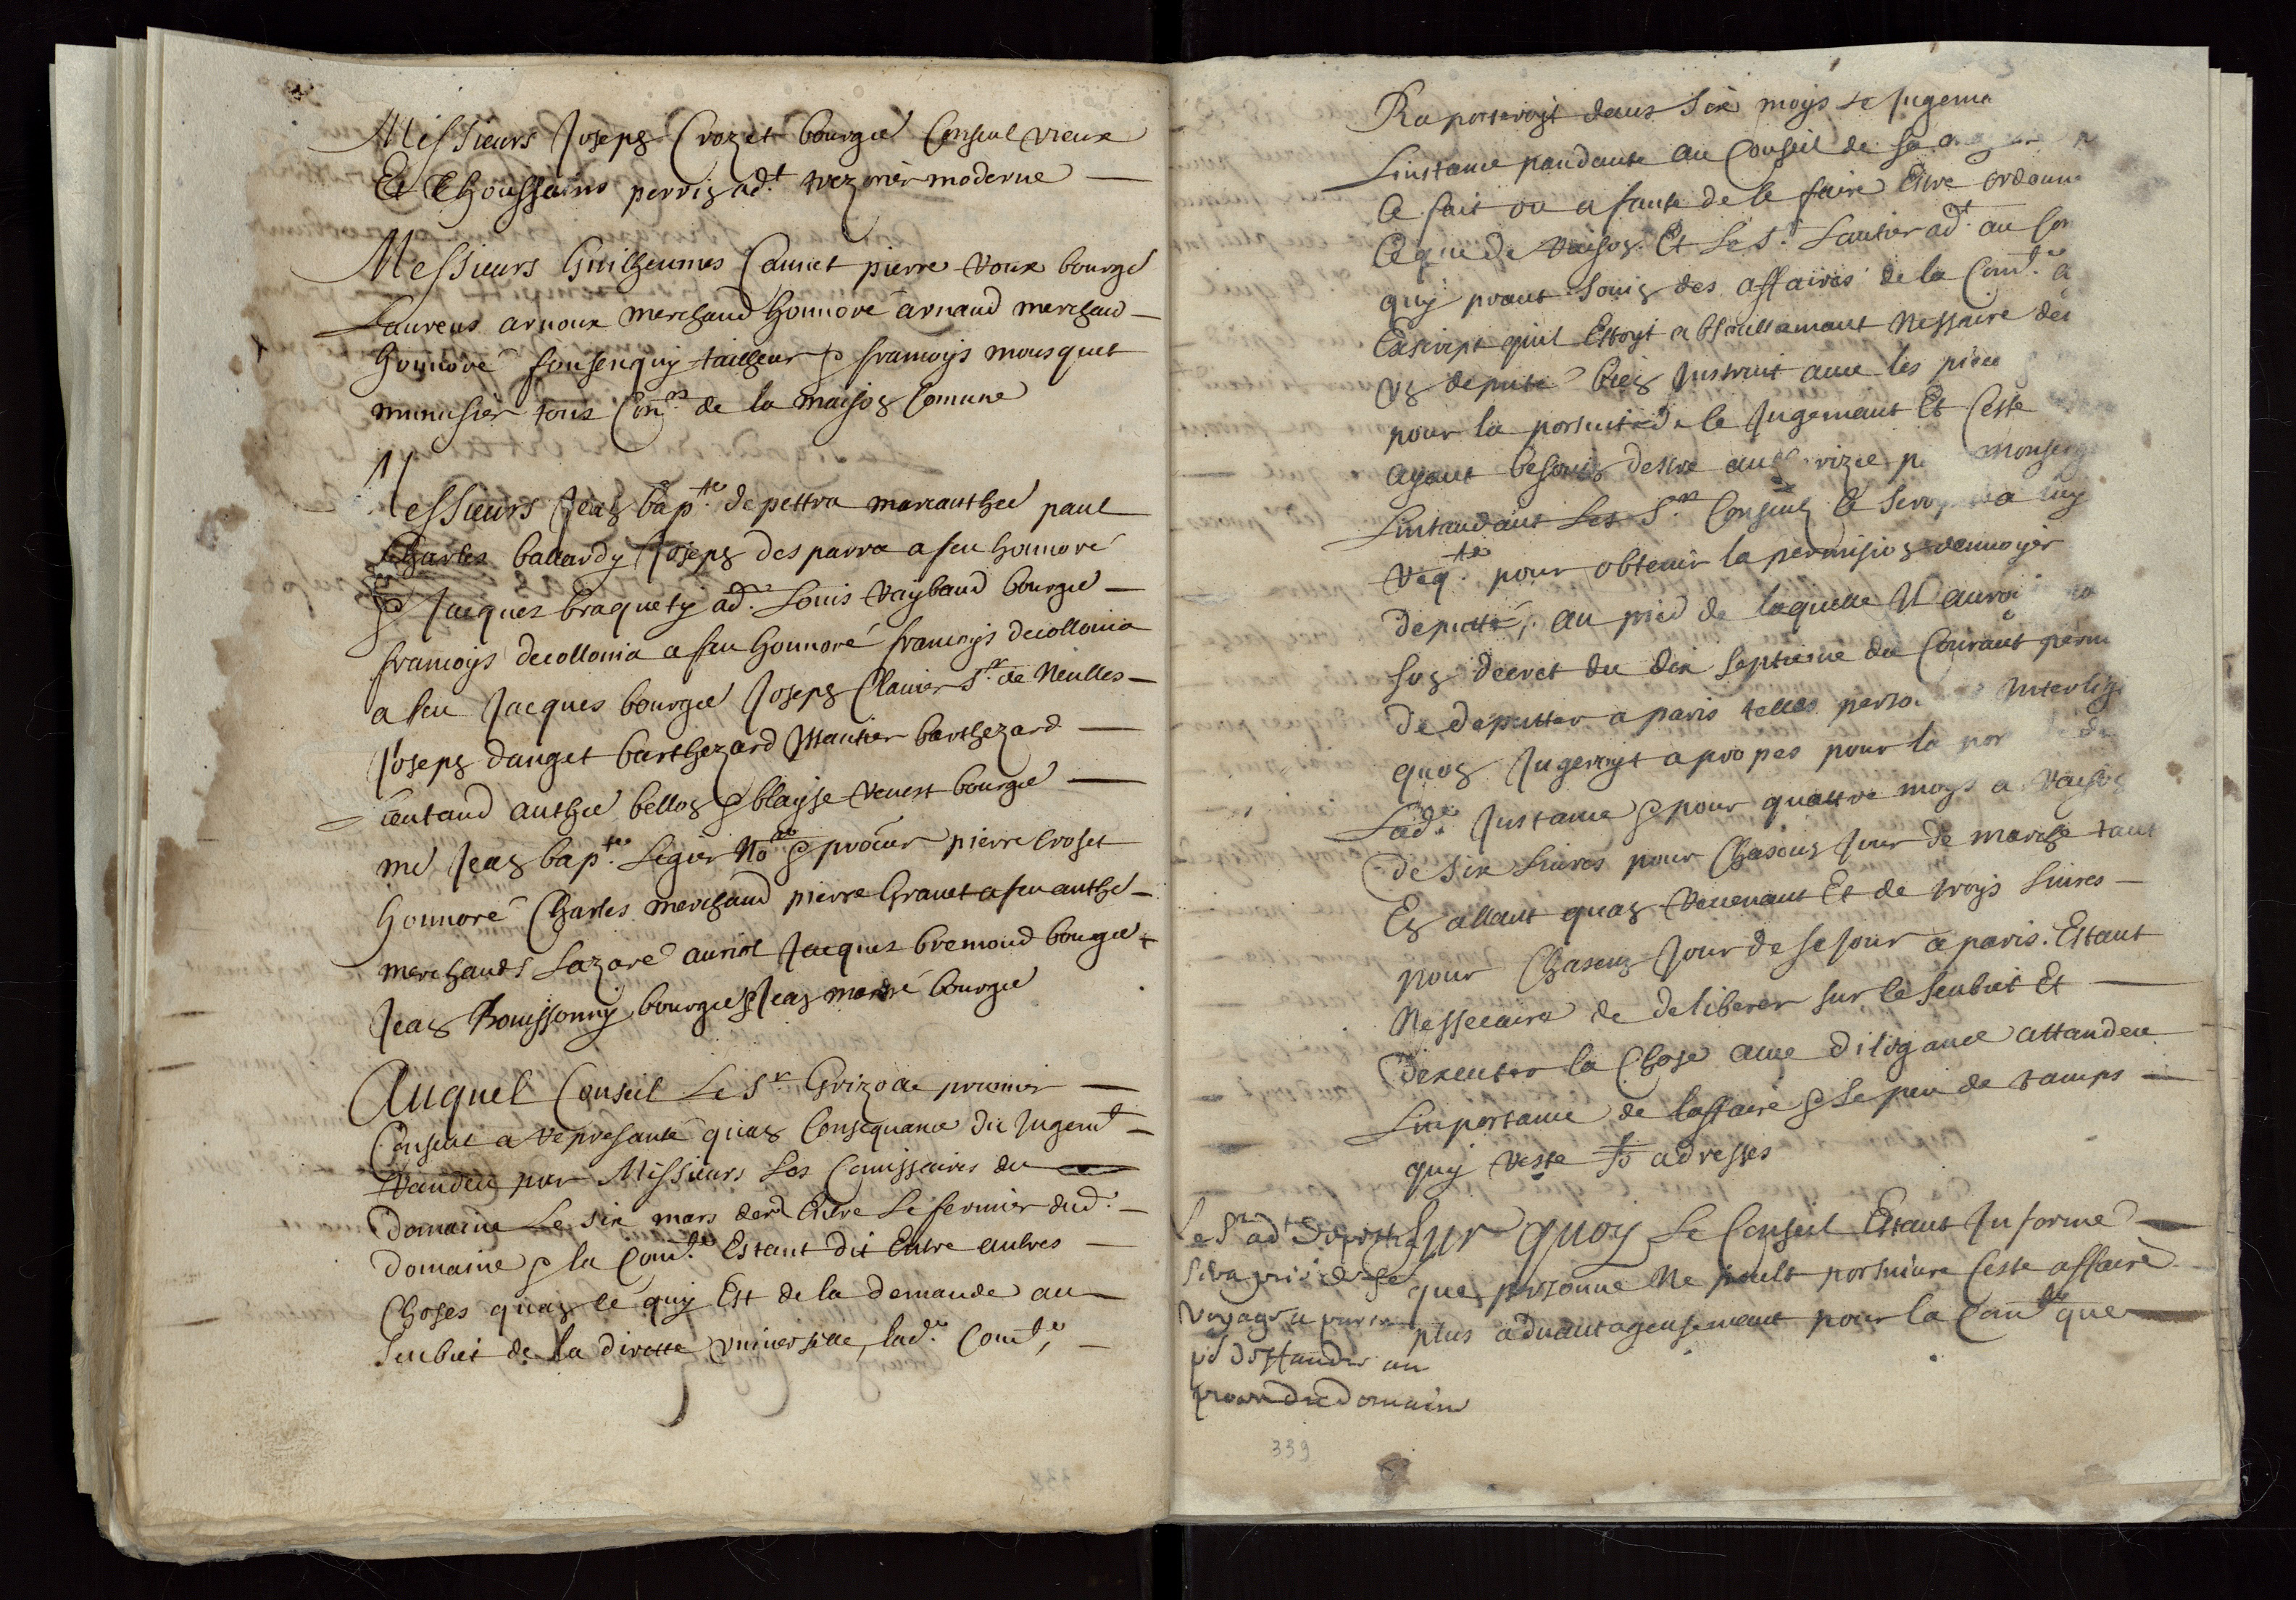 Messieurs Joseph Crozet bourgeé Consul vieux
Et Thoussains perrin ad.t trezorier moderne
Messieurs Guilheumes Caunet pierre Roux bourgé
Laurens arnoux merchand honnoré arnaud merchand
honnoré fonsenquy tailheur & francoys mousquet
munusier tous Con.rs de la maison Comune
Messieurs Jean bap.te de pettra mananthee paul
Charles ballardy Joseph desparra a feu honnoré
& Jacques braquety ad.ts Louis Raybaud bourgé
francoys decollonia a feu honnoré francoys decollonia
a feu Jacques bourgeé Joseph Clavier S.r de Neulles
Joseph danget barthezard Mautier barthezard
autheé bellon & blayse Venest bourgé
me Jean bap.te Legier No.re & procur pierre Croset
honnoré Charles merchand pierre Gravet a feu anthé
merchands Lazaré auriol Jacques bremond bourgé
Jean Bouissonny bourgé & Jean marré bourgé
Auquel Conseil Le S.r Grizolle premier
Consul a represanté quen Consequance du Jugemt
Randeu par Messieurs Les Comissaires du
Domaine Le six mars der.r Entre Le fermier dud.
Domaine & la Com.té Estant dit Entre aultres
Choses quen ce quy Est de la demande au
Subiet de la directe universelle, lad.e Com.té,
Raporteroyt dans Six moys Le Jugema
Linstance pandante au Conseil de sa
Ce fait ou a faute de le faire Estre ordonné
Ce que de Raison. Et Le S.r Lautier ad.t au
quy prant Soing des affaires de la Com.té a
Escript quil Estoyt absoullamant Nessaire
un deputé bien Instruit avec les pièce
pour la porsuite de le Jugemant Et Ceste
ayant besoing destre authorizée p monseig
Lintandant Les S.rs Consulz
Req.te pour obtenir la permision denvoyer
deputté, au pied de laquelle Il auroi
Son decret du dix septieme du Courant perm
De deputter a paris telles perso
quon Jugeroyt a propos pour la por
Lad.e Instance & pour quattre moys a Raison
De six Livres pour Chascun Jour de marche tant
En allant quen Revenant Et de troys Livres
pour Chascun Jour de sejour a paris. Estant
Nessecaire de deliberer sur le Seubiet Et
Dexecuter la Chose avec diligance attandeu
Limportance de laffaire & le peu de tamps
quy Reste adresses
Sur quoy Le Conseil Estant Informé
que personne Ne peult porsuivre Ceste affaire
plus advantageusemant pour la Com.té que
Le S.r ad.t
voyage a paris
deffandre au
du Domaine
339